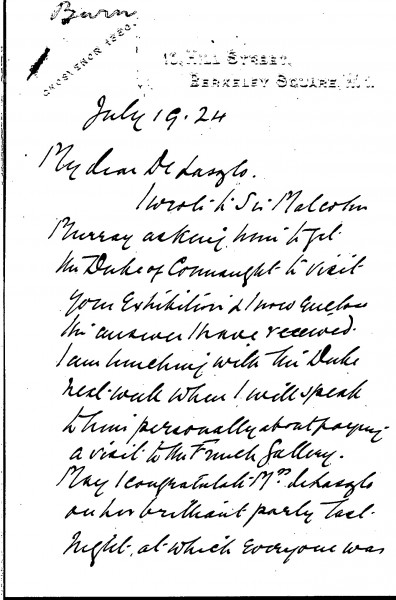 Burn
GROSVENOR 1880.
10, HILL STREET,
BERKELEY SQUARE, W.1.
July 19. 24
My dear De Laszlo.
I wrote to Sir Malcolm
Murray asking him to get
the Duke of Connaught to visit
your Exhibition & I now enclose
the answer I have received.
I am lunching with the Duke
next week when I will speak
to him personally about paying
a visit to the French Gallery.
May I congratulate Mrs de Laszlo
on her brilliant party last
night, at which everyone was